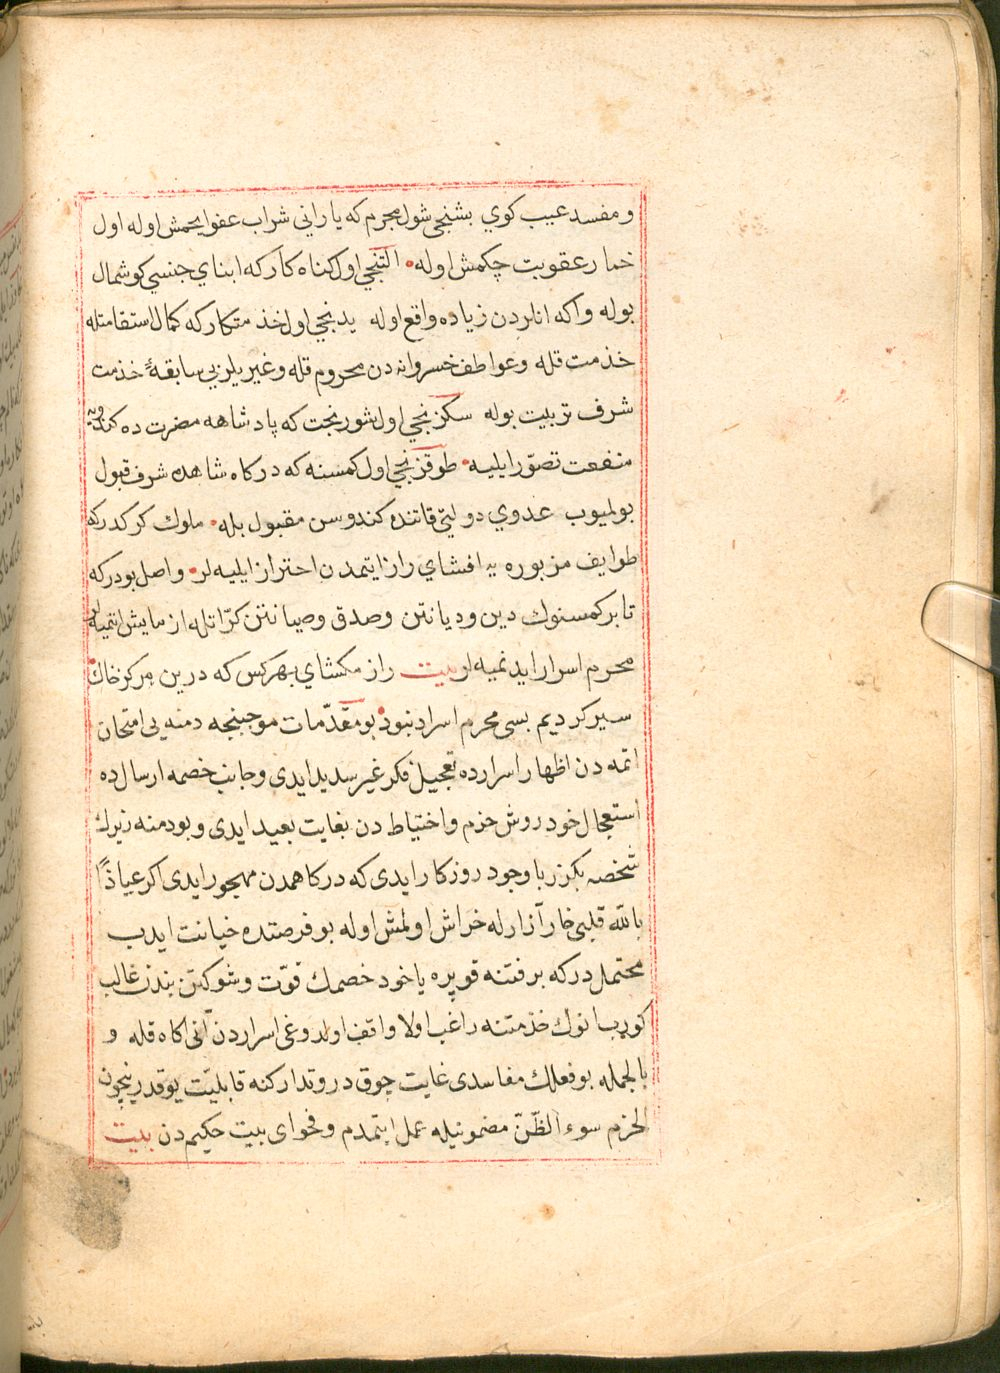 و مفسد عيب كوي بشنجي شول مجرم كه يا راني شراب عفو ايچمش اوله اول
خمار عقوبت چكمش اوله التنجي اول كناه كار كه ابناي جنسي كوشمال
بوله و اكه انلردن زياده واقع اوله يدنجي اول خذمتكار كه كمال استقامتله
خذمت قله و عواطف خسروانه دن محروم قله و غيريلر بي سابقهٔ خذمت
شرف تربيت بوله سكزنجي اول شور بخت كه پادشاهه مضرت ده كندويه
منفعت تصوّر ايليه طوقزنجي اول كمسنه كه دركاه شاهده شرف قبول
بولميوب عدوي دولتي قاتنده كندوسن مقبول بله ملوك كركدركه
طوايف مزبوره يه افشاي راز ايتمدن احتراز ايليه لر و اصل بودركه
تا بر كمسنوك دين و ديانتن و صدق و صيانتن كرّاتله ازمايش اتميه لر
محرم اسرار ايدنميه لر بيت راز مكشاي بهر كس كه درين مركز خاك
سير كرديم بسى محرم اسرار نبود بو مقدّمات موجبنجه دمنه يي امتحان
اتمه دن اظهار اسرارده تعجيل فكر غير سديد ايدى و جانب خصمه ارسال ده
استعجال خود روش حزم و احتياط دن بغايت بعيد ايدى و بو دمنه زيرك
شخصه بكزر با وجود روزكار ايدى كه دركاهمدن مهجور ايدى اكر عياذًا
بالله قلبي خار آزارله خراش اولمش اوله بو فرصتده خيانت ايدب
محتملدر كه بر فتنه قوپره يا خود خصمك قوّت و شوكتن بندن غالب
كورب انوك خذمتنه راغب اولا واقف اولدوغى اسراردن آنى اكاه قله و
بالجمله بو فعلك مفاسدى غايت چوق در و تداركنه قابليّت يوقدر نيچون
الحزم سوء الظّنّ مضمونيله عمل ايتمدم و فحواى بيت حكيم دن بيت